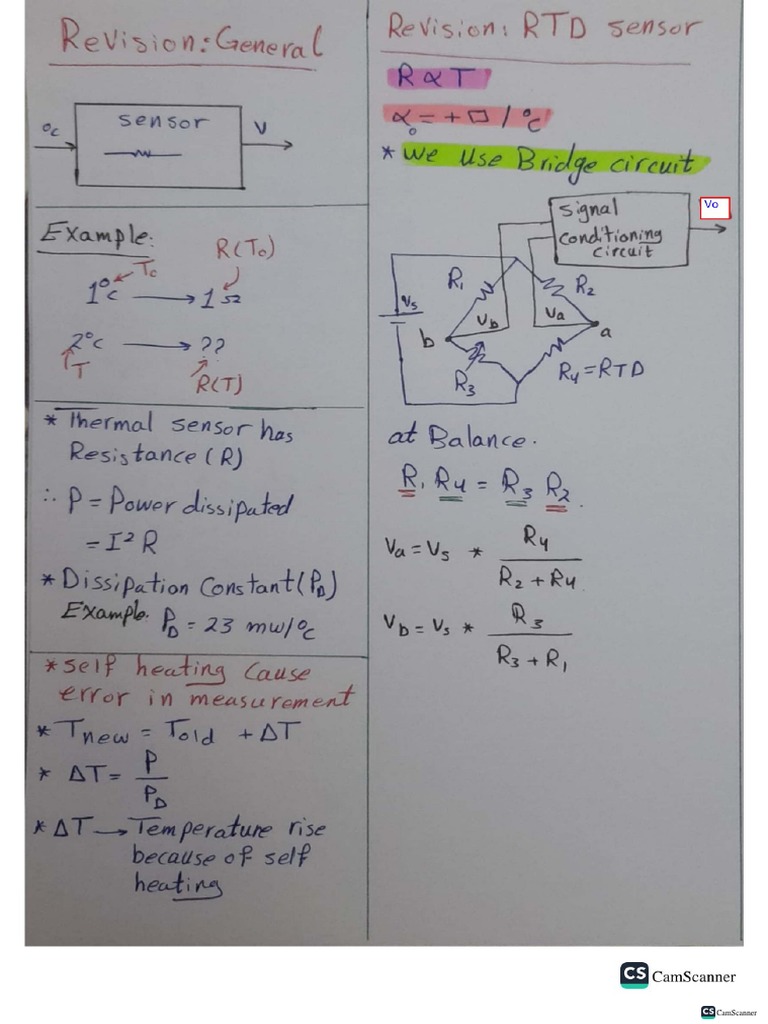 Revision: General
°C
sensor
V
Example:
R(T₀)
T₀
1°C → 1 Ω
2°C → ??
T
R(T)
* Thermal sensor has
Resistance (R)
∴ P = Power dissipated
= I² R
* Dissipation Constant (P_D)
Example. P_D = 23 mw/°C
* self heating Cause
error in measurement
* Tnew = Told + ΔT
* ΔT = P / P_D
* ΔT → Temperature rise
because of self
heating
Revision: RTD sensor
R α T
α₀ = + □ / °C
* We Use Bridge circuit
Signal
conditioning
circuit
Vo
R₁
R₂
Vs
Vb
Va
b
a
R₃
R₄ = RTD
at Balance.
R₁ R₄ = R₃ R₂.
Va = Vs * R₄ / R₂ + R₄
Vb = Vs * R₃ / R₃ + R₁
CS CamScanner
CS CamScanner